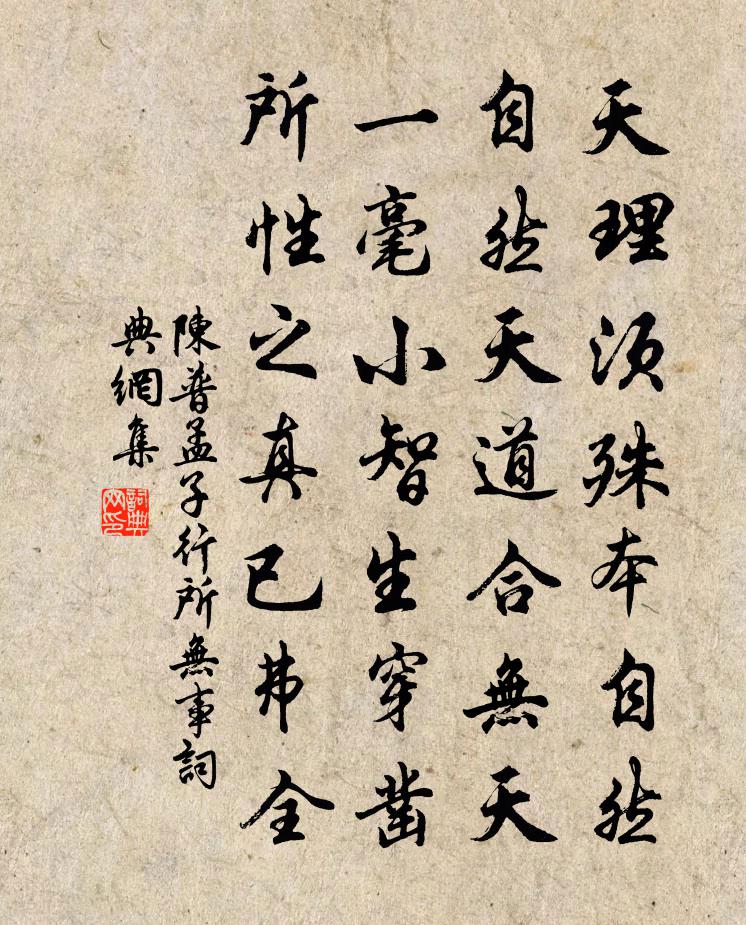 天理须殊本自然
自然天道合無天
一毫小智生穿凿
所性之真已弗全
陳普孟子行所無事詞
典網集
詞典网印